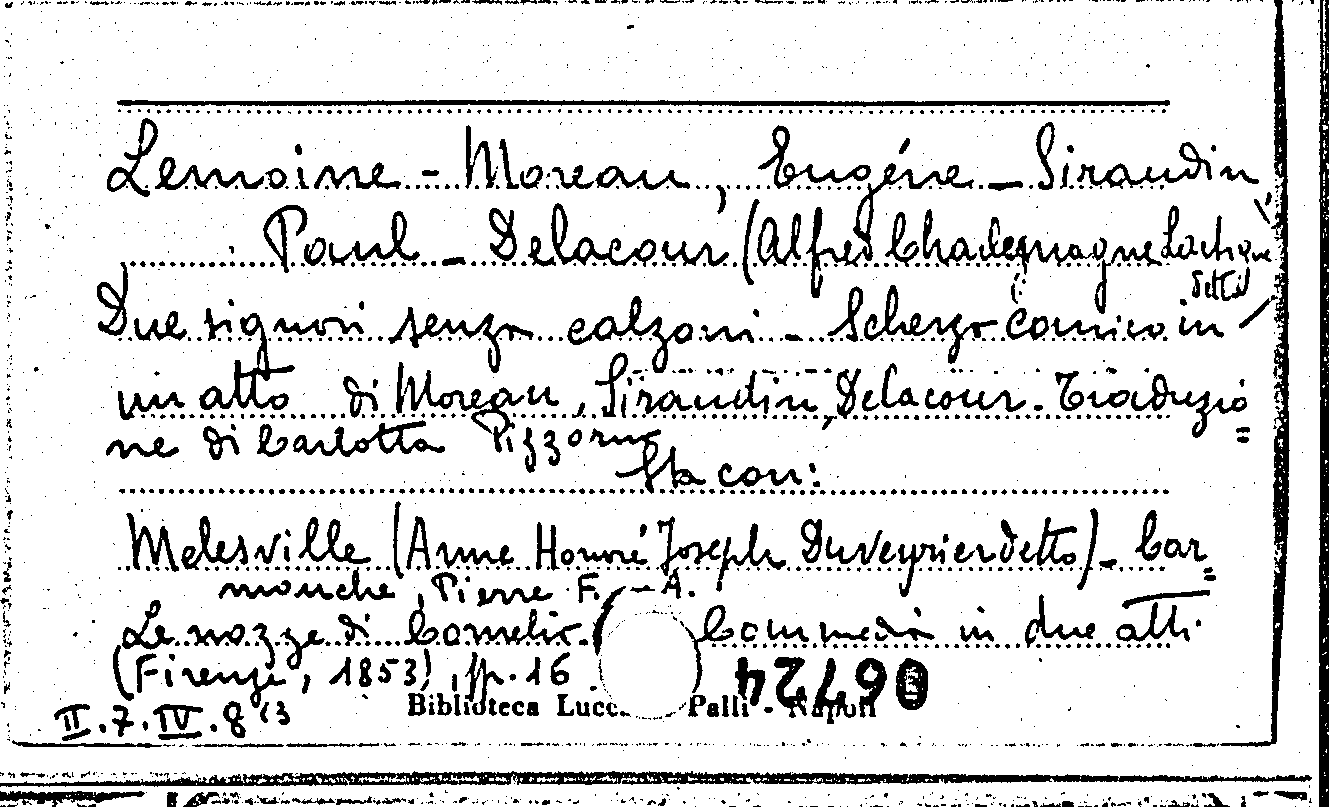 Lemoine - Moreau, Eugéne - Siraudin,
Paul - Delacour (Alfred Charlemagne Lartigue
detto)
Due signori senza calzoni - Scherzo comico in
un atto di Moreau, Siraudin, Delacour. Traduzio=
ne di Carlotta Pizzorno
Sta con:
Melesville (Anne Honoré Joseph Duveyrier detto) - Car=
mouche, Pierre F. - A.
Le nozze di Commedia in due atti
(Firenze, 1853), pp. 16
06724
Biblioteca Lucc Palli - Napoli
II.7.IV.8